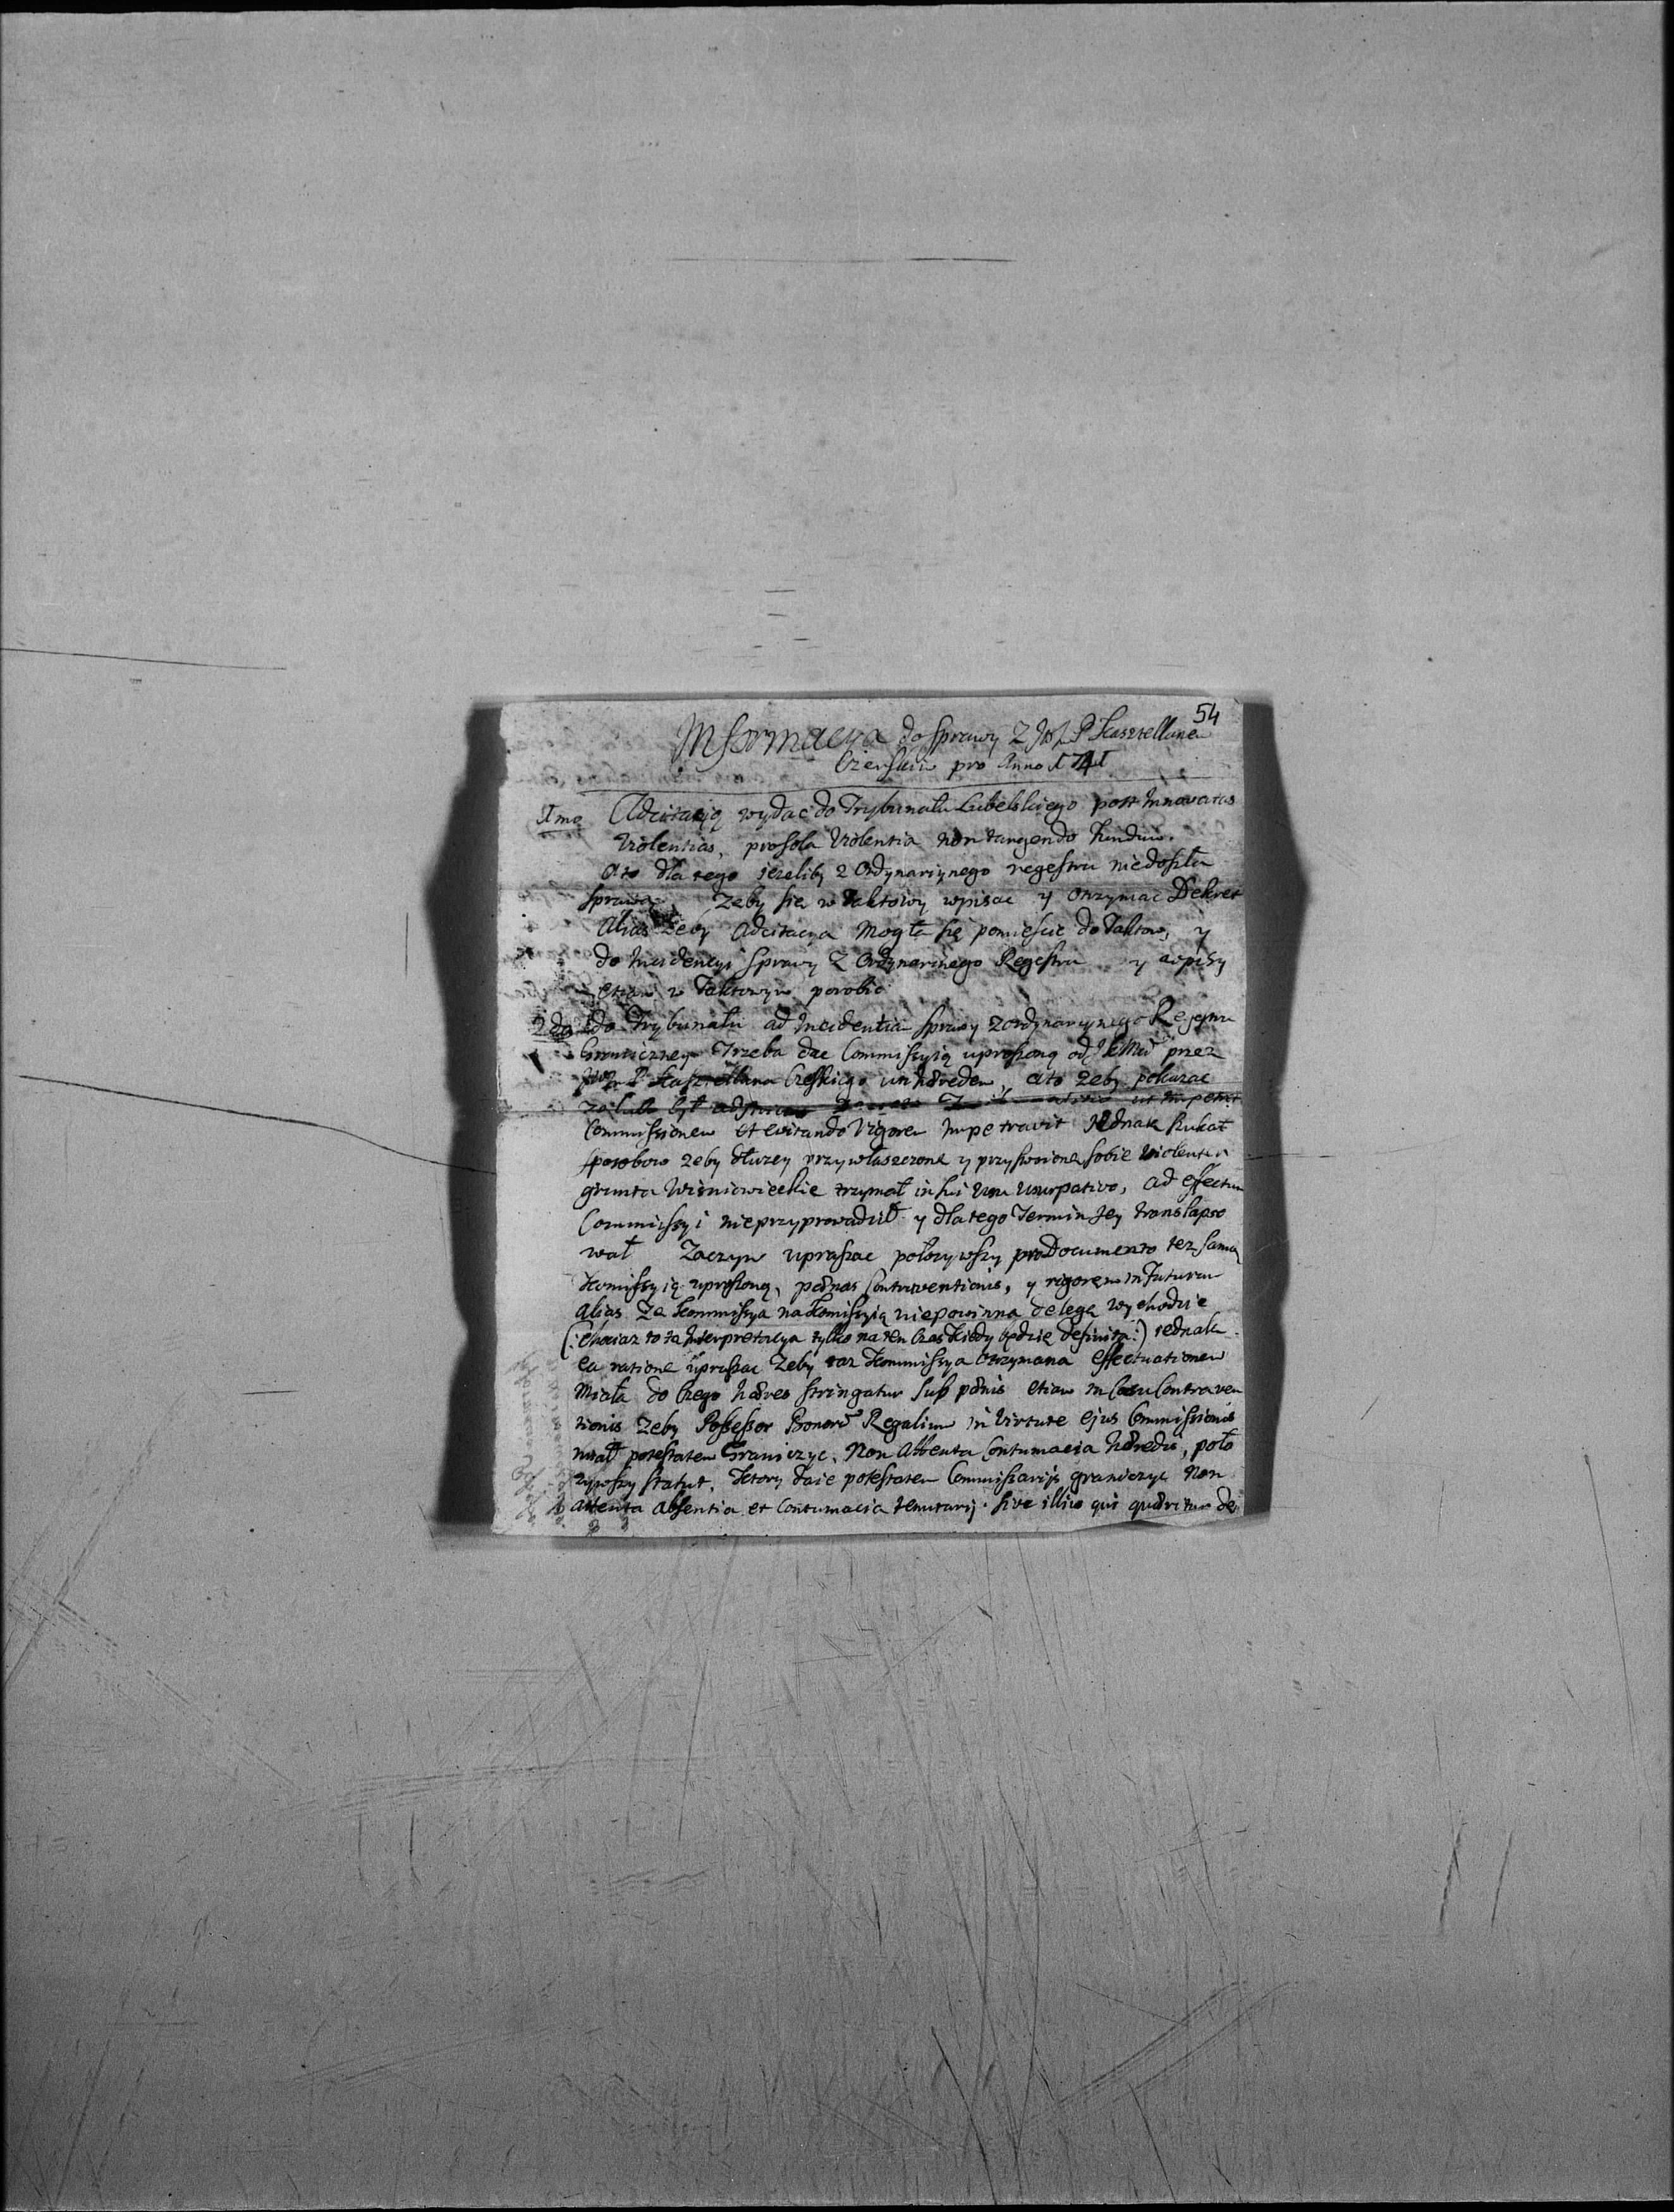 54
Informacya do sprawy z JW P Kasztellanem
Czerskim pro Anno 1741
1mo Adcitacyą wydać do Trybunału Lubelskiego post Innovatas
Violentias, pro sola Violentia non tangendo fundum.
a to dla tego jezeliby z Ordynaryinego regestru niedoszła
sprawa zeby się w Taktowy wpisac y otrzymac Dekret
alias zeby Adcitacya mogła się pomieścić do Taktow, y
do Incidencyi sprawy z Ordynarinego Regestru y wpisy
etiam w Taktowym porobic
2do do Trybunału ad Incidentia sprawy z ordynaryinego Regestru
Granicznego Trzeba dac Commissyią uproszoną od JKMci przez
JW P Kasztellana Czerskiego un hæredem, a to zeby pokazac
ze lubo był
Commissionem et evitando rigorem Impetravit Jednak szukał
sposobow zeby dłuzey przywłaszczone y przyswoione sobie violenter
grunta Wisniowieckie trzymał in sui usu usurpativo, ad effectum
Commissyi nieprzyprowadził y dlatego Termin Jey translapso
wał Zaczym upraszac połozywszy pro Documento tez samą
Komissyią uproszoną, pænas Contraventionis, y rigorem in futurum
alias ze Kommissya na Komissyią niepowinna de lege wychodzic
(: chociaz to ta Interpretacya tylko na ten czas kiedy będzie definita :) jednak
ea ratione upraszac zeby raz Kommissya otrzymana effectuationem
miała do czego hæres stringatur sub pænis etiam in Casu Contraven
tionis zeby Possessor Bonorũ Regalium in virtute ejus Commissionis
miał potestatem Graniczyc, Non Attenta Contumacia hæredis, poło
zywszy statut, ktory daie potestatem Commissarijs graniczyc Non
attenta absentia et Contumacia tenutarij sive illius qui quæritur de